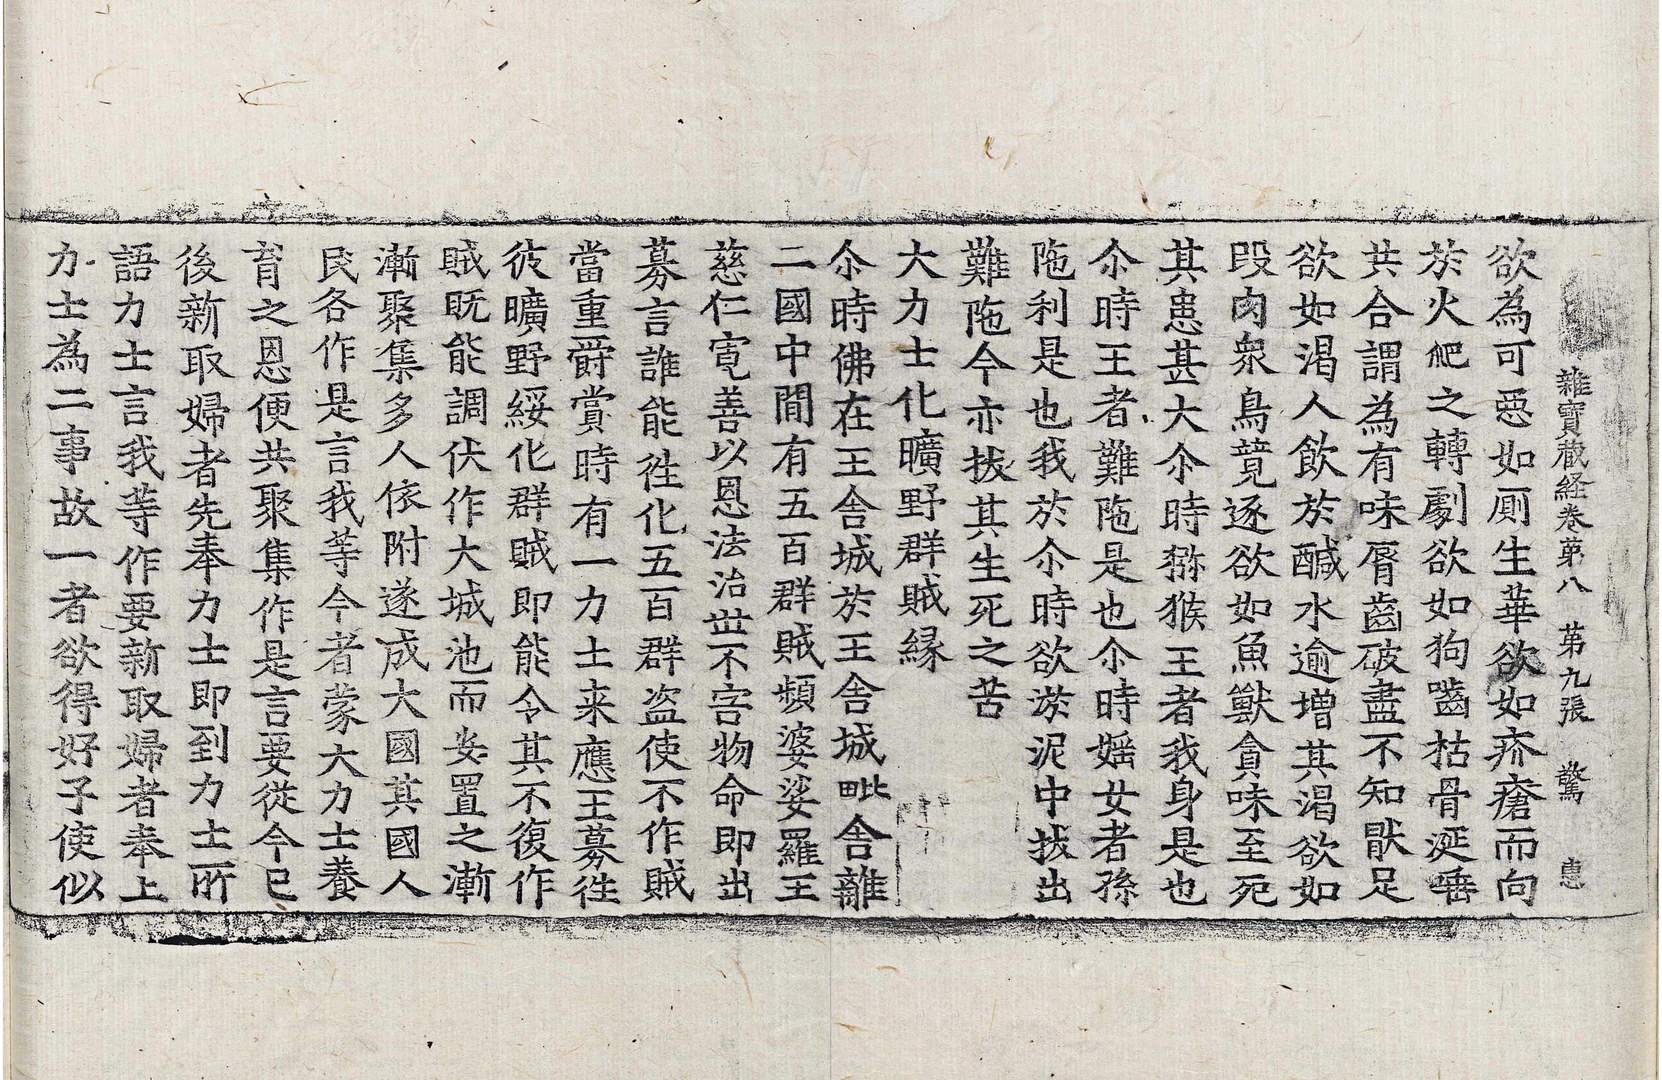 雜寶藏経巻第八 第九張 驚 惠
欲為可惡如厠生華欲如疥瘡而向
於火爬之轉劇欲如狗嚙枯骨涎唾
共合謂為有味脣齒破盡不知猒足
欲如渴人飲於醎水逾增其渴欲如
段肉衆鳥競逐欲如魚獸貪味至死
其患甚大尒時獼猴王者我身是也
尒時王者難陁是也尒時婬女者孫
陁利是也我於尒時欲淤泥中拔出
難陁今亦拔其生死之苦
大力士化曠野群賊縁
尒時佛在王舍城於王舍城毗舍離
二國中間有五百群賊頻婆娑羅王
慈仁寬善以恩法治世不害物命即出
募言誰能徃化五百群盜使不作賊
當重爵賞時有一力士来應王募徃
彼曠野綏化群賊即能令其不復作
賊既能調伏作大城池而安置之漸
漸聚集多人依附遂成大國其國人
民各作是言我等今者蒙大力士養
育之恩便共聚集作是言要從今已
後新取婦者先奉力士即到力士所
語力士言我等作要新取婦者奉上
力士為二事故一者欲得好子使似